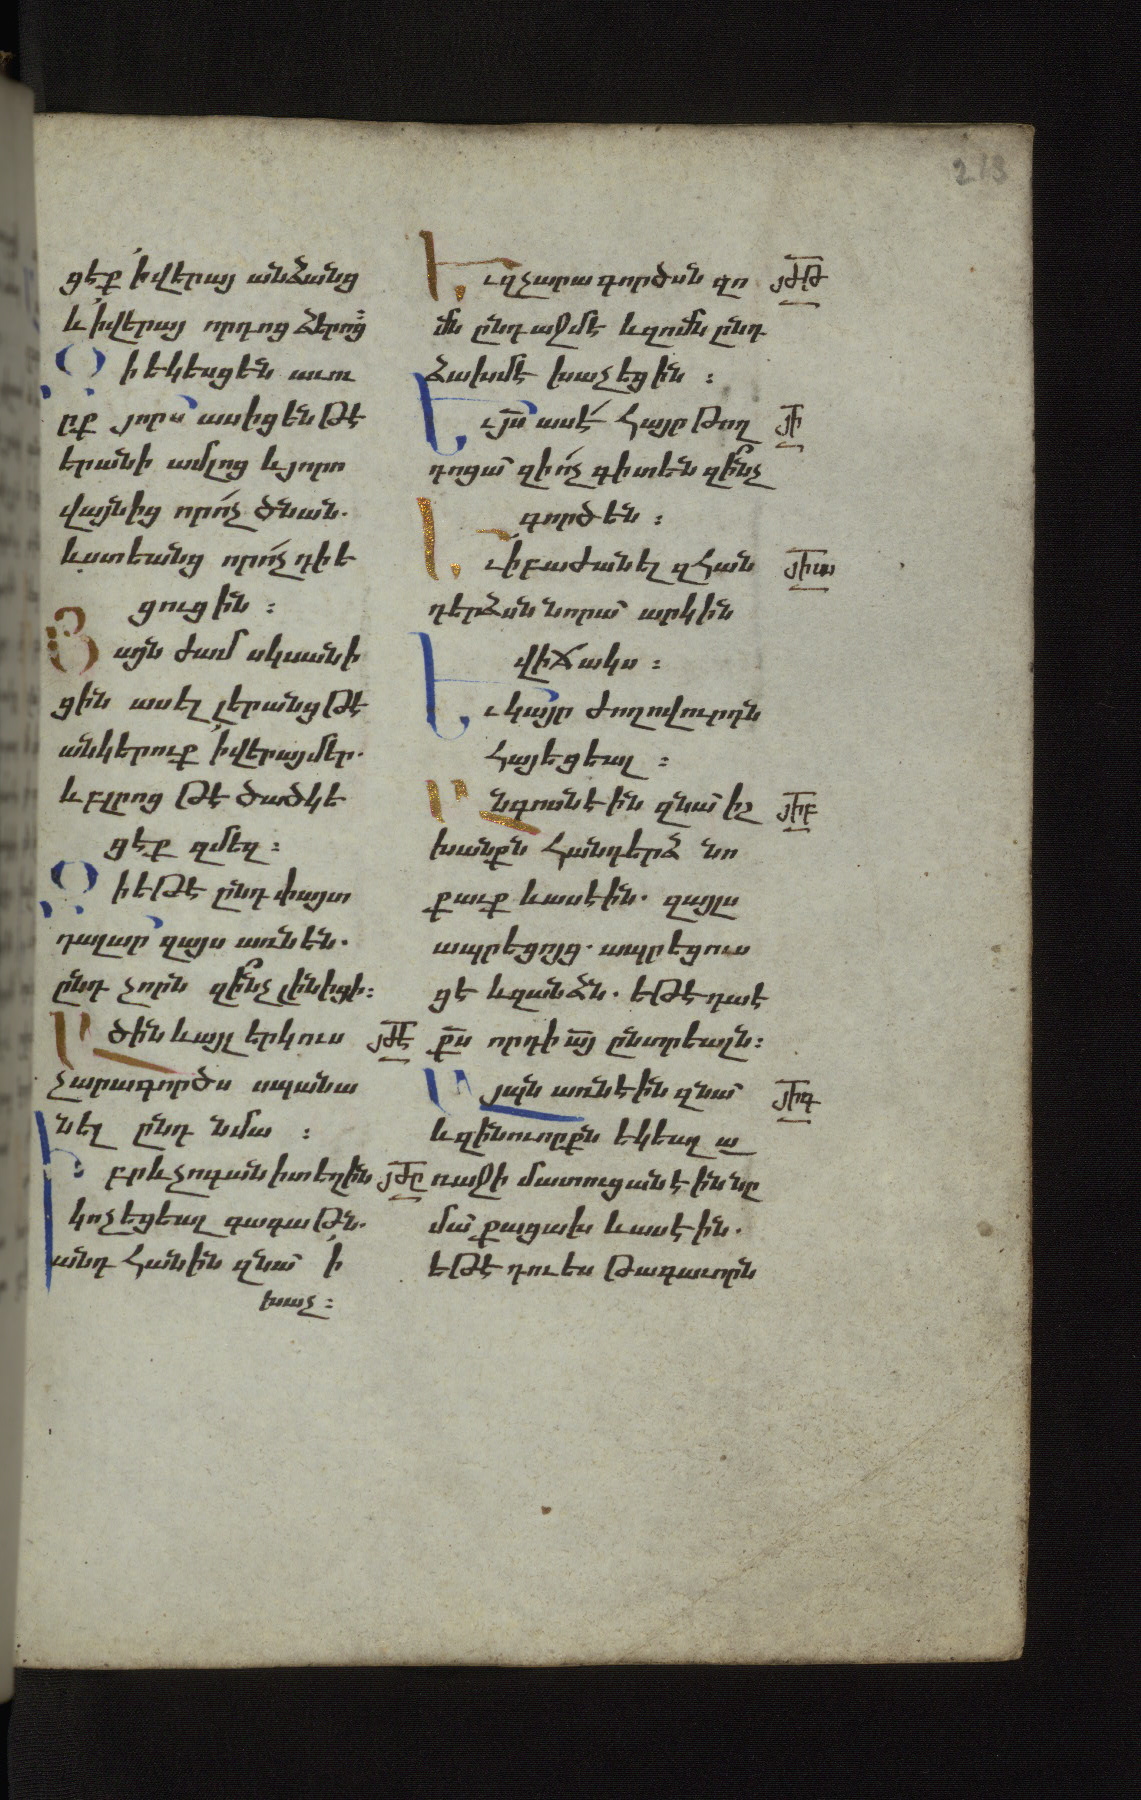 213
ցէք ՛ի վերայ անձանց
և ՛ի վերայ որդոց ձերոց։
Զի եկեսցեն աւու
րք յորս ասիցեն թէ
երանի ամլոց և յորո
վայնից որ ո՛չ ծնան.
և ստեանց որ ո՛չ դիե
ցուցին ։
Յայն ժամ սկսանի
ցին ասել լերանց թէ
անկերուք ՛ի վերայ մեր.
և բլրոց թէ ծածկե
ցէք զմեզ ։
Զի եթէ ընդ փայտ
դալար զայս առնեն.
ընդ չորն զի՞նչ լինիցի ։
Ածին և այլ երկուս յժէ
չարագործս սպանա
նել ընդ նմա ։
Եւ իբրև չոգան ի տեղին յժը
կոչեցեալ գագաթն.
անդ հանին զնա ՛ի
խաչ ։
Եւ զչարագործսն զո յժթ
մն ընդ աջմէ և զոմն ընդ
ձախմէ խաչեցին ։
Եւ յս ասէ՛ հայր թող յի
դոցա զի ո՛չ գիտեն զի՞նչ
գործեն ։
Եւ ՛ի բաժանել զհան յիա
դերձսն նորա արկին
վիճակս ։
Եւ կայր ժողովուրդն
հայեցեալ ։
Անգոսնէին զնա իշ յիբ
խանքն հանդերձ նո
քաւք և ասէին. զայլս
ապրեցոյց. ապրեցուս
ցե և զանձն. եթէ դա է
քս որդի այ ընտրեալն ։
Այպն առնէին զնա յիգ
և զինուորքն եկեալ ա
ռաջի մատուցանէին նը
մա քացախ և ասէին.
եթէ դու ես թագաւորն